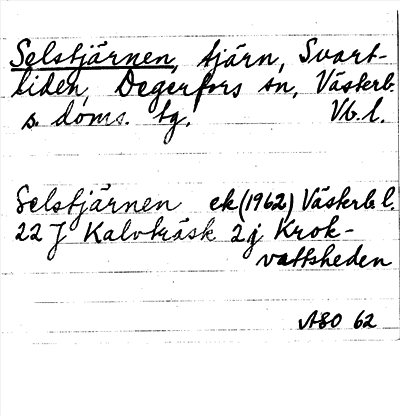 Selstjärnen, tjärn, Svart-
liden, Degerfors sn, Västerb.
s. doms. tg. Vb. l.
Selstjärnen ek (1962) Västerb. l.
22 J Kalvträsk 2 j Krok-
vattsheden
ASO 62